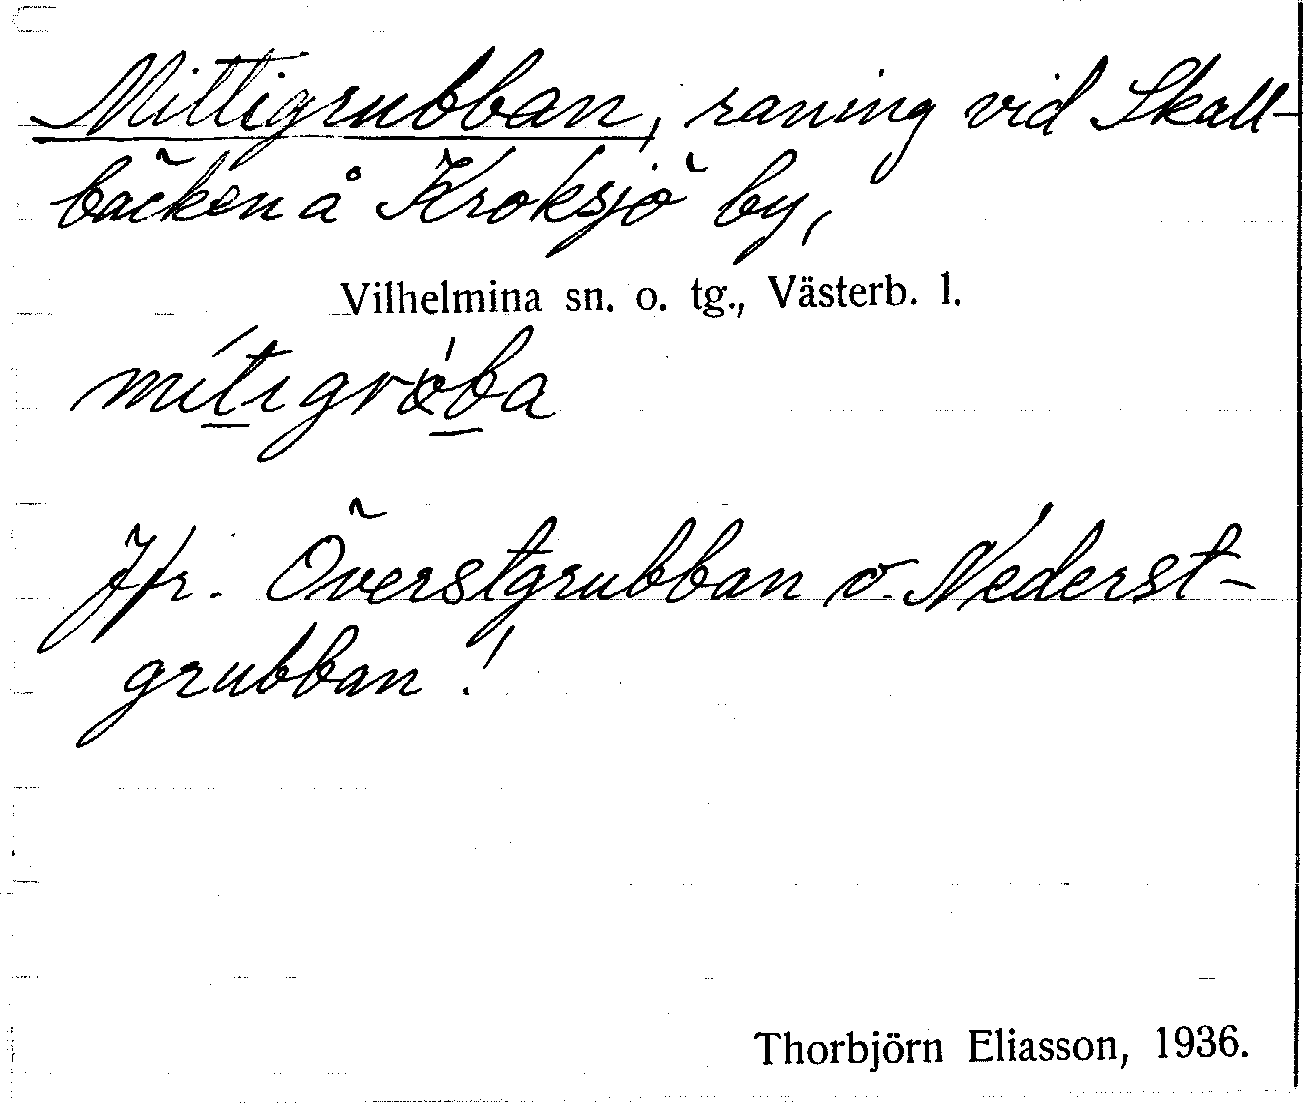 Mittigrubban, raning vid Skall-
bäcken å Kroksjö by,
Vilhelmina sn. o. tg., Västerb. l.
Jfr. Överstgrubban o. Nederst-
grubban!
Thorbjörn Eliasson, 1936.